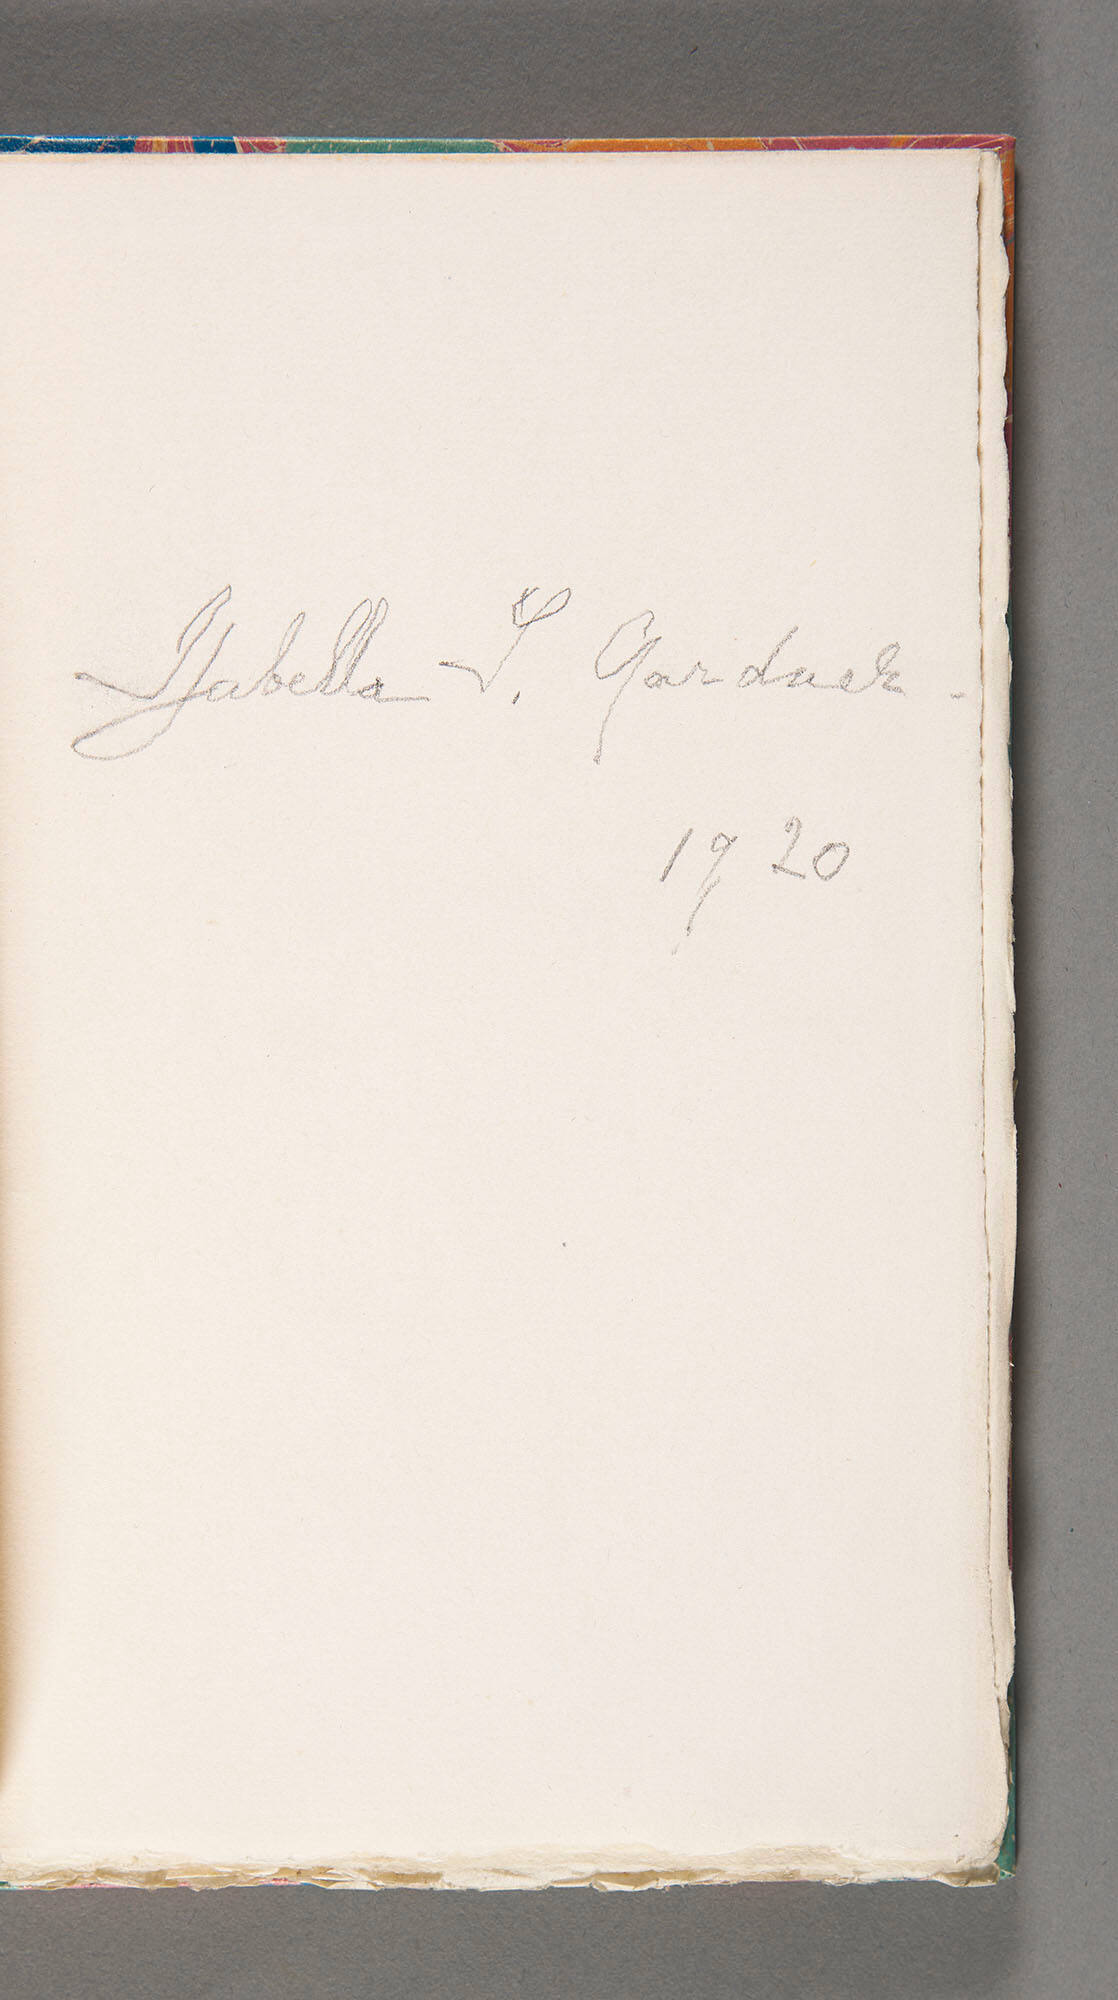 Isabella S. Gardner -
1920